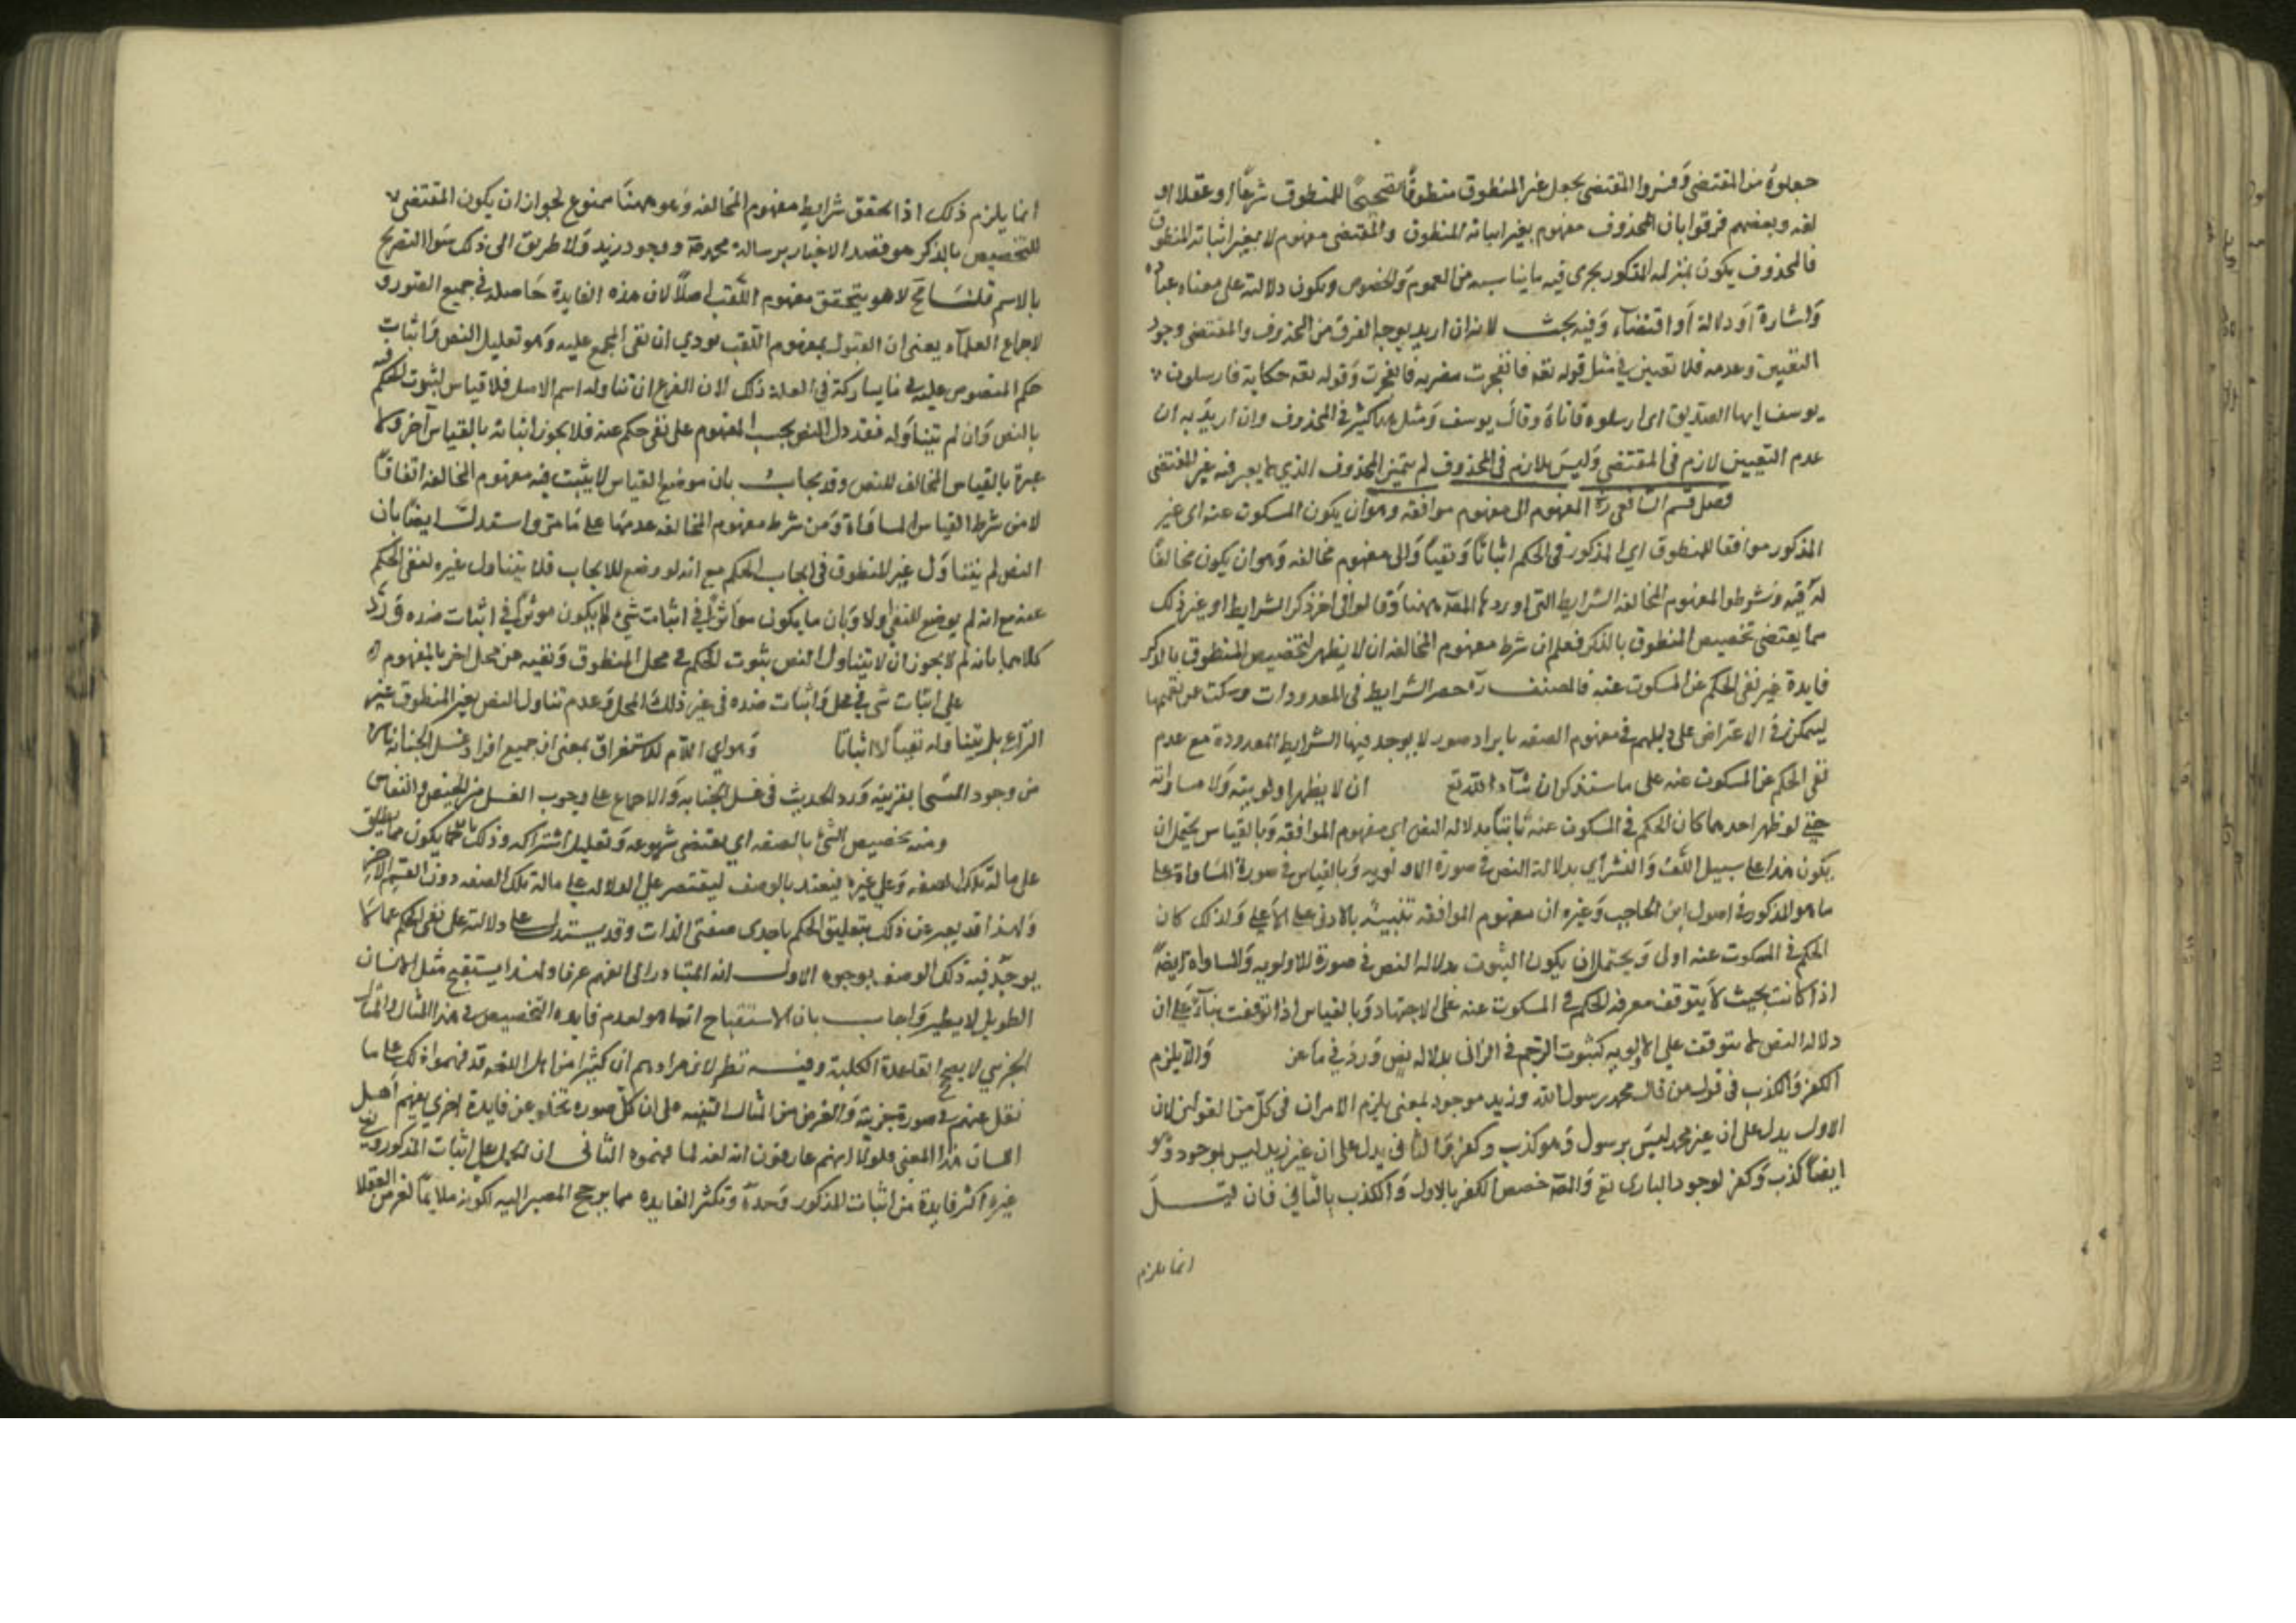 جعلوه من المقتضي وفسروا المقتضي بجعل غير المنطوق منطوقا تصحيحا للمنطوق شرعا او عقلا او
لغه وبعضهم فرقوا بان المحذوف مفهوم بغير اثباته المنطوق والمقتضي مفهوم لا يغير اثباته المنطوق
فالمحذوف يكون بمنزله المذكور يجري فيه ما يناسبه من العموم والخصوص ويكون دلالته على معناه عبارة
واشارة او دلالة او اقتضاء وفيه بحث لانه ان اريد بوجه الفرق من المحذوف والمقتضي وجود
التعيين وعدمه فلا تعيين في مثل قوله تعه فانفجرت فضربه فانفجرت وقوله تعه حكاية فارسلون
يوسف ايها الصديق اي ارسلوه فاتاه وقال يوسف ومثل هذا كثير في المحذوف وان اريد به ان
عدم التعيين لازم في المقتضي وليس بلازم في المحذوف لم يتميز المحذوف الذي لا يعبر فيه غير المقتضي
فصل قسم الشافعي ره المفهوم الى مفهوم موافقه وهو ان يكون المسكوت عنه اي غير
المذكور موافقا للمنطوق اي المذكور في الحكم اثباتا ونفيا والى مفهوم مخالفه وهو ان يكون مخالفا
له فيه وشرطوا لمفهوم المخالفه الشرايط التي اوردها المصه ههنا وقالوا في اخر ذكر الشرايط او غير ذلك
مما يقتضي تخصيص المنطوق بالذكر فعلم ان شرط مفهوم المخالفه ان لا يظهر لتخصيص المنطوق بالذكر
فايدة غير نفى الحكم عن المسكوت عنه فالمصنف ره حصر الشرايط في المعدودات وسكت عن تتمتها
ليتمكن في الاعتراض على دليلهم في مفهوم الصفه بايراد صور لا يوجد فيها الشرايط المعدودة مع عدم
نفى الحكم عن المسكوت عنه على ما ستذكر ان شاء الله تع ان لا يظهر اولويته ولا مساواته
حتى لو ظهر احدهما كان الحكم في المسكوت عنه ثابتا بدلاله النص اي مفهوم الموافقه وبالقياس يحتمل ان
يكون هذا على سبيل اللف والنشر اي بدلالة النص في صورة الاولويه وبالقياس في صورة المساواة على
ما هو المذكور في اصول ابن الحاجب وغيره ان مفهوم الموافقه تنبيه بالادنى على الاعلى ولذلك كان
الحكم في المسكوت عنه اولى ويحتمل ان يكون الثبوت بدلاله النص في صورة الاولويه والمساواه ايضا
اذا كانت بحيث لا يتوقف معرفه الحكم في المسكوت عنه على الاجتهاد وبالقياس اذا توقفت بناء على ان
دلاله النص لا يتوقف على الاولويه كثبوت الرجم في الزاني بدلاله نص ورد في ماعز والا يلزم
الكفر والكذب في قول من قال محمد رسول الله وزيد موجود لمعنى يلزم الامران في كل من القولين لان
الاول يدل على ان غير محمد ليس برسول وهو كذب وكفر والثاني يدل على ان غير زيد ليس بموجود وهو
ايضا كذب وكفر لوجود الباري تع والمصه خصص الكفر بالاول والكذب بالثاني فان قيل
انما يلزم
انما يلزم ذلك اذا تحقق شرايط مفهوم المخالفه وهو ههنا ممنوع لجواز ان يكون المقتضي
للتخصيص بالذكر هو قصد الاخبار برسالة محمد صه ووجود زيد ولا طريق الى ذلك سوا التصريح
بالاسم قلنا فح لا هو يتحقق مفهوم اللقب اصلا لان هذه الفايدة حاصله في جميع الصور و
لاجماع العلماء يعني ان القول بمفهوم اللقب يودي ان نفى المجمع عليه وهو تعليل النص واثبات
حكم المنصوص عليه في ما يشاركه في العلة ذلك لان الفرع ان تناوله اسم الاصل فلا قياس لثبوت الحكم فيه
بالنص وان لم يتناوله فقد دل النص بحسب المفهوم على نفى حكم عنه فلا يجوز اثباته بالقياس آخر ولا
عبرة بالقياس المخالف للنص وقد يجاب بان موضع القياس لا يثبت فيه مفهوم المخالفه اتفاقا
لان من شرط القياس المساواة ومن شرط مفهوم المخالفه عدمها على ما مر واستدل ايضا بان
النص لم يتناول غير المنطوق في ايجاب الحكم مع انه لو وضع للايجاب فلا يتناول غيره لنفى الحكم
عنه مع انه لم يوضع للنفي اولا وبان ما يكون مؤثرا في اثبات شيء لا يكون موثرا في اثبات ضده ورد
كلاهما بانه لم لا يجوز ان لا يتناول النص ثبوت الحكم في محل المنطوق ونفيه عن محل اخر بالمفهوم
على اثبات شي في محل واثبات ضده في غير ذلك المحل وعدم تناول النص لغير المنطوق عين
النزاع بل يتناوله نفيا لا اثباتا وهو اي اللام للاستغراق بمعنى ان جميع افراد غسل الجنابه ناش
من وجود المني بقرينه ورد الحديث في غسل الجنابه والاجماع على وجوب الغسل من الحيض والنفاس
ومنه تخصيص الشئ بالصفه اي يقتضي شيوعه وتقليل اشتراكه وذلك بانما يكون مما يطلق
على ما له تلك الصفه وعلى غيره ليتقيد بالوصف ليقتصر على الدلاله على ما له تلك الصفه دون القسم الآخر
ولهذا قد يعبر عن ذلك بتعليق الحكم باحدى صفتي الذات وقد يستدل على دلالته على نفى الحكم عما لا
يوجد فيه ذلك الوصف بوجوه الاول انه المتبادر الى الفهم عرفا ولهذا يستقبح مثل الانسان
الطويل لا يطير واجاب بان الاستقباح انما هو لعدم فايده التخصيص في هذا المثال والمثال
الجزيي لا يصح القاعدة الكلية وفيه نظر لان مرادهم ان كثيرا من اهل اللغه قد فهموا ذلك على ما
نقل عنهم في صورة جزيية والغرض من المثال التنبيه على ان كل صوره تخلو عن فايدة اخرى يفهم اهل
اللسان هذا المعنى فلولا انهم عارفون انه لغه لما فهموه الثاني ان الحمل على اثبات المذكور ونفي
غيره اكثر فايدة من اثبات المذكور وحده وتكثر الفايده مما يرجح المصير اليه لكونه ملايما لغرض العقلا